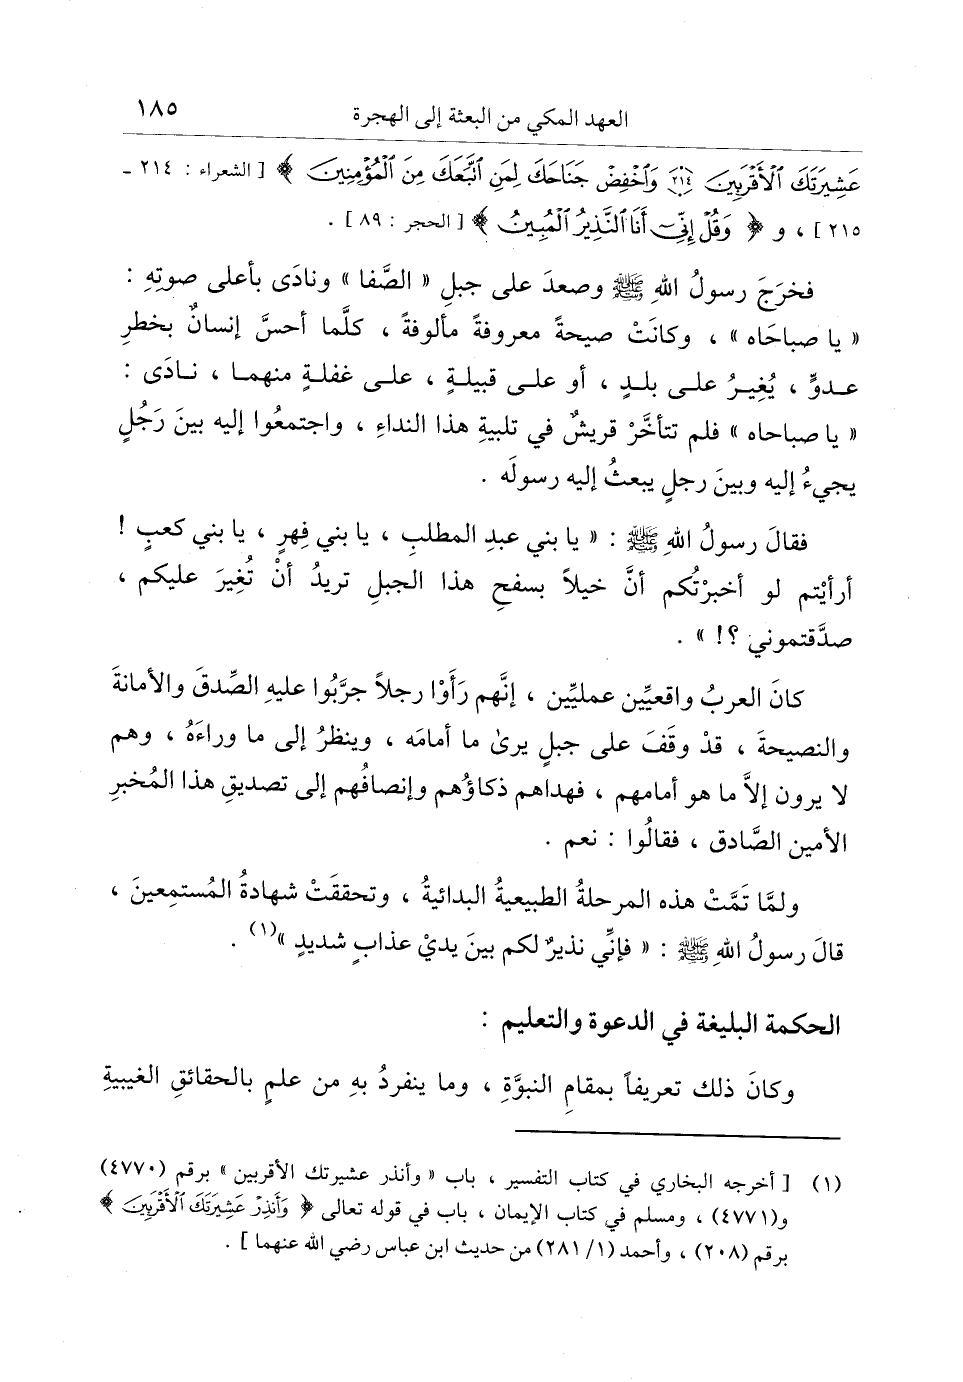 العهد المكي من البعثة إلى الهجرة ١٨٥
عَشِيرَتَكَ ٱلْأَقْرَبِينَ ۝٢١٤ وَٱخْفِضْ جَنَاحَكَ لِمَنِ ٱتَّبَعَكَ مِنَ ٱلْمُؤْمِنِينَ ﴾ [ الشعراء : ٢١٤ ـ
٢١٥ ] ، و ﴿ وَقُلْ إِنِّىٓ أَنَا ٱلنَّذِيرُ ٱلْمُبِينُ ﴾ [ الحجر : ٨٩ ] .
فخرَجَ رسولُ اللهِ ﷺ وصعدَ على جبلِ « الصَّفا » ونادَى بأعلى صوتِهِ :
« يا صباحَاه » ، وكانَتْ صيحةً معروفةً مألوفةً ، كلَّما أحسَّ إنسانٌ بخطرِ
عدوٍّ ، يُغِيرُ على بلدٍ ، أو على قبيلةٍ ، على غفلةٍ منهما ، نادَى :
« يا صباحاه » فلم تتأخَّرْ قريشٌ في تلبيةِ هذا النداءِ ، واجتمعُوا إليه بينَ رَجُلٍ
يجيءُ إليه وبينَ رجلٍ يبعثُ إليه رسولَه .
فقالَ رسولُ اللهِ ﷺ : « يا بني عبدِ المطلبِ ، يا بني فِهرٍ ، يا بني كعبٍ !
أرأيْتم لو أخبرْتُكم أنَّ خيلاً بسفحِ هذا الجبلِ تريدُ أنْ تُغِيرَ عليكم ،
صدَّقتموني ؟! » .
كانَ العربُ واقعيِّين عمليِّين ، إنَّهم رَأَوْا رجلاً جرَّبُوا عليهِ الصِّدقَ والأمانةَ
والنصيحةَ ، قدْ وقفَ على جبلٍ يرىٰ ما أمامَه ، وينظرُ إلى ما وراءَهُ ، وهم
لا يرون إلاَّ ما هو أمامهم ، فهداهم ذكاؤُهم وإنصافُهم إلى تصديقِ هذا المُخبرِ
الأمين الصَّادق ، فقالُوا : نعم .
ولمَّا تَمَّتْ هذه المرحلةُ الطبيعيةُ البدائيةُ ، وتحققَتْ شهادةُ المُستمِعينَ ،
قالَ رسولُ اللهِ ﷺ : « فإنِّي نذيرٌ لكم بينَ يديْ عذابٍ شديدٍ »(١) .
الحكمة البليغة في الدعوة والتعليم :
وكانَ ذلك تعريفاً بمقامِ النبوَّةِ ، وما ينفردُ بهِ من علمٍ بالحقائقِ الغيبيةِ
(١) [ أخرجه البخاري في كتاب التفسير ، باب « وأنذر عشيرتك الأقربين » برقم (٤٧٧٠)
و(٤٧٧١) ، ومسلم في كتاب الإيمان ، باب في قوله تعالى ﴿ وَأَنذِرْ عَشِيرَتَكَ ٱلْأَقْرَبِينَ ﴾
برقم (٢٠٨) ، وأحمد (١/ ٢٨١) من حديث ابن عباس رضي الله عنهما ] .